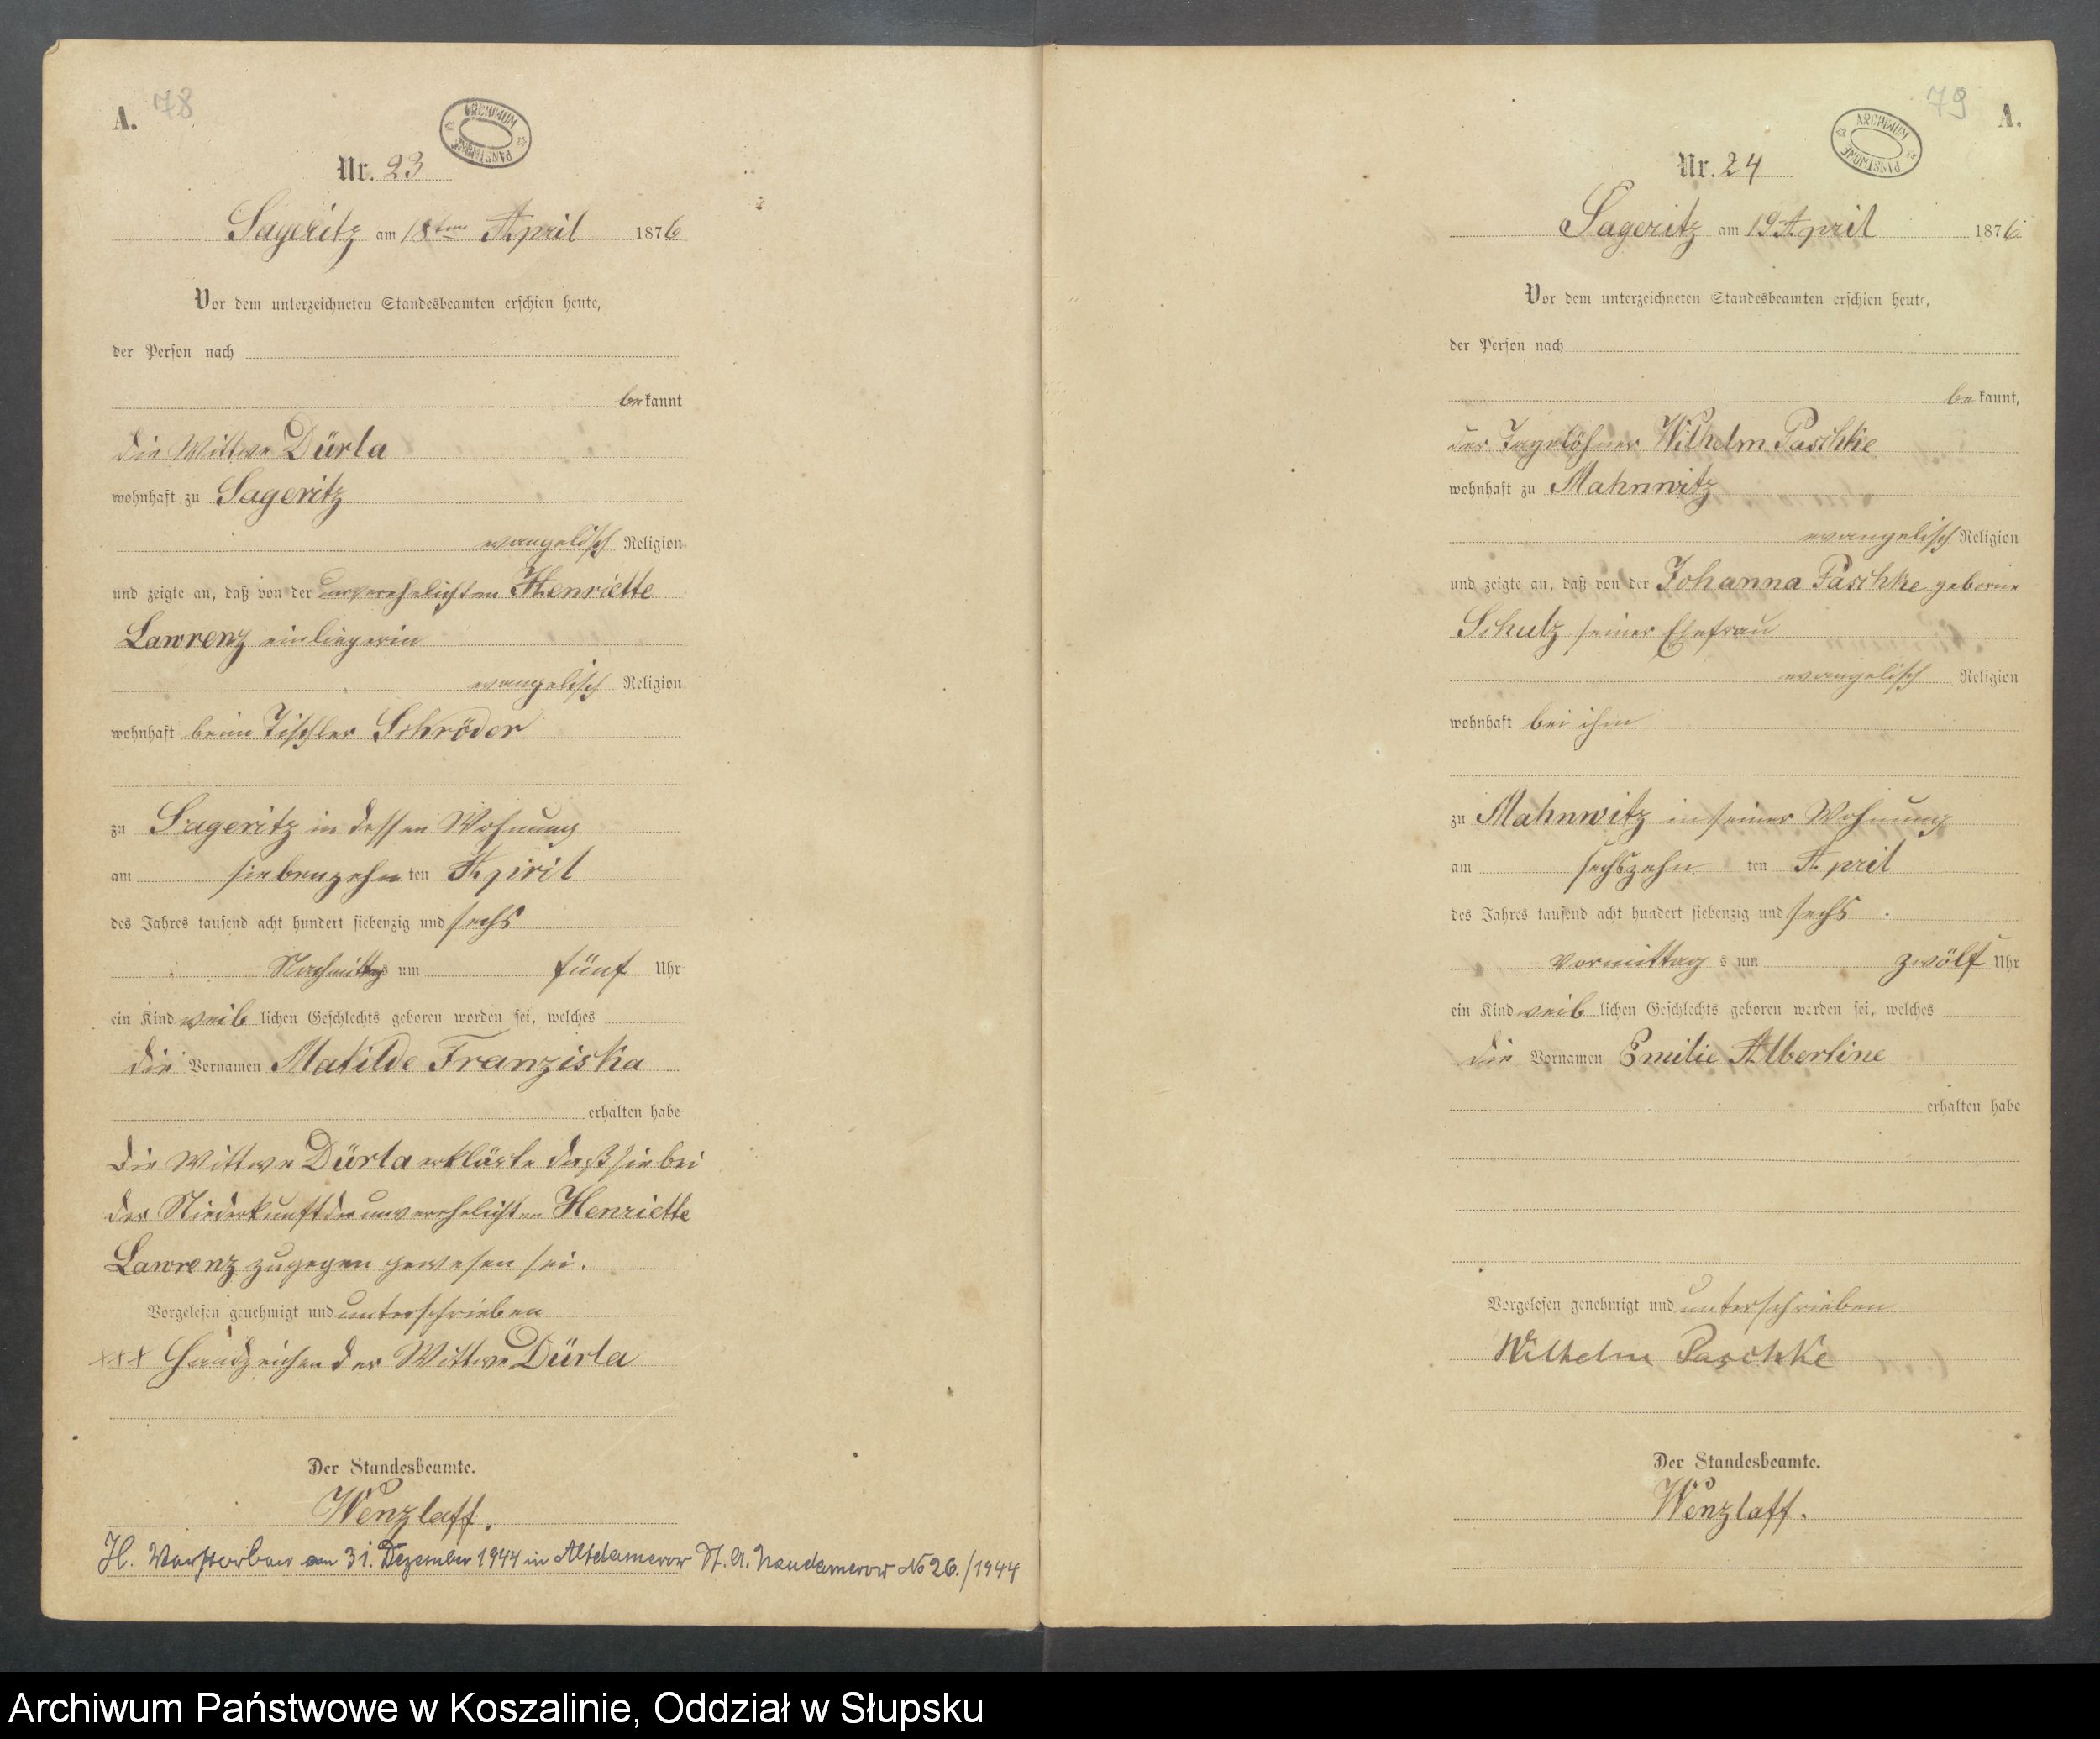 A. 78
ARCHIWUM PAŃSTWOWE
Nr. 23
Sageritz am 18ten April 1876
Vor dem unterzeichneten Standesbeamten erschien heute,
der Person nach
bekannt
die Wittwe Dürla
wohnhaft zu Sageritz
evangelisch Religion
und zeigte an, daß von der unverehelichten Henriette
Lawrenz einliegerin
evangelisch Religion
wohnhaft beim Tischler Schröder
zu Sageritz in dessen Wohnung
am siebenzehn ten April
des Jahres tausend acht hundert siebenzig und sechs
Nachmittags um fünf Uhr
ein Kind weib lichen Geschlechts geboren worden sei, welches
die Vornamen Matilde Franziska
erhalten habe
die Wittwe Dürla erklärte daß sie bei
der Niederkunft der unverehelichten Henriette
Lawrenz zugegen gewesen sei.
Vorgelesen genehmigt und unterschrieben
XXX Handzeichen der Wittwe Dürla
Der Standesbeamte.
Wenzlaff.
H. Verstorben am 31. Dezember 1944 in Altdamerow St. A. Neudamerow No 26./1944
79 A.
ARCHIWUM PAŃSTWOWE
Nr. 24
Sageritz am 19 April 1876
Vor dem unterzeichneten Standesbeamten erschien heute,
der Person nach
bekannt,
der Tagelöhner Wilhelm Paschke
wohnhaft zu Mahnwitz
evangelisch Religion
und zeigte an, daß von der Johanna Paschke geborne
Schulz seiner Ehefrau
evangelisch Religion
wohnhaft bei ihm
zu Mahnwitz in seiner Wohnung
am sechszehn ten April
des Jahres tausend acht hundert siebenzig und sechs
Vormittag s um zwölf Uhr
ein Kind weib lichen Geschlechts geboren worden sei, welches
die Vornamen Emilie Albertine
erhalten habe
Vorgelesen genehmigt und unterschrieben
Wilhelm Paschke
Der Standesbeamte.
Wenzlaff.
Archiwum Państwowe w Koszalinie, Oddział w Słupsku